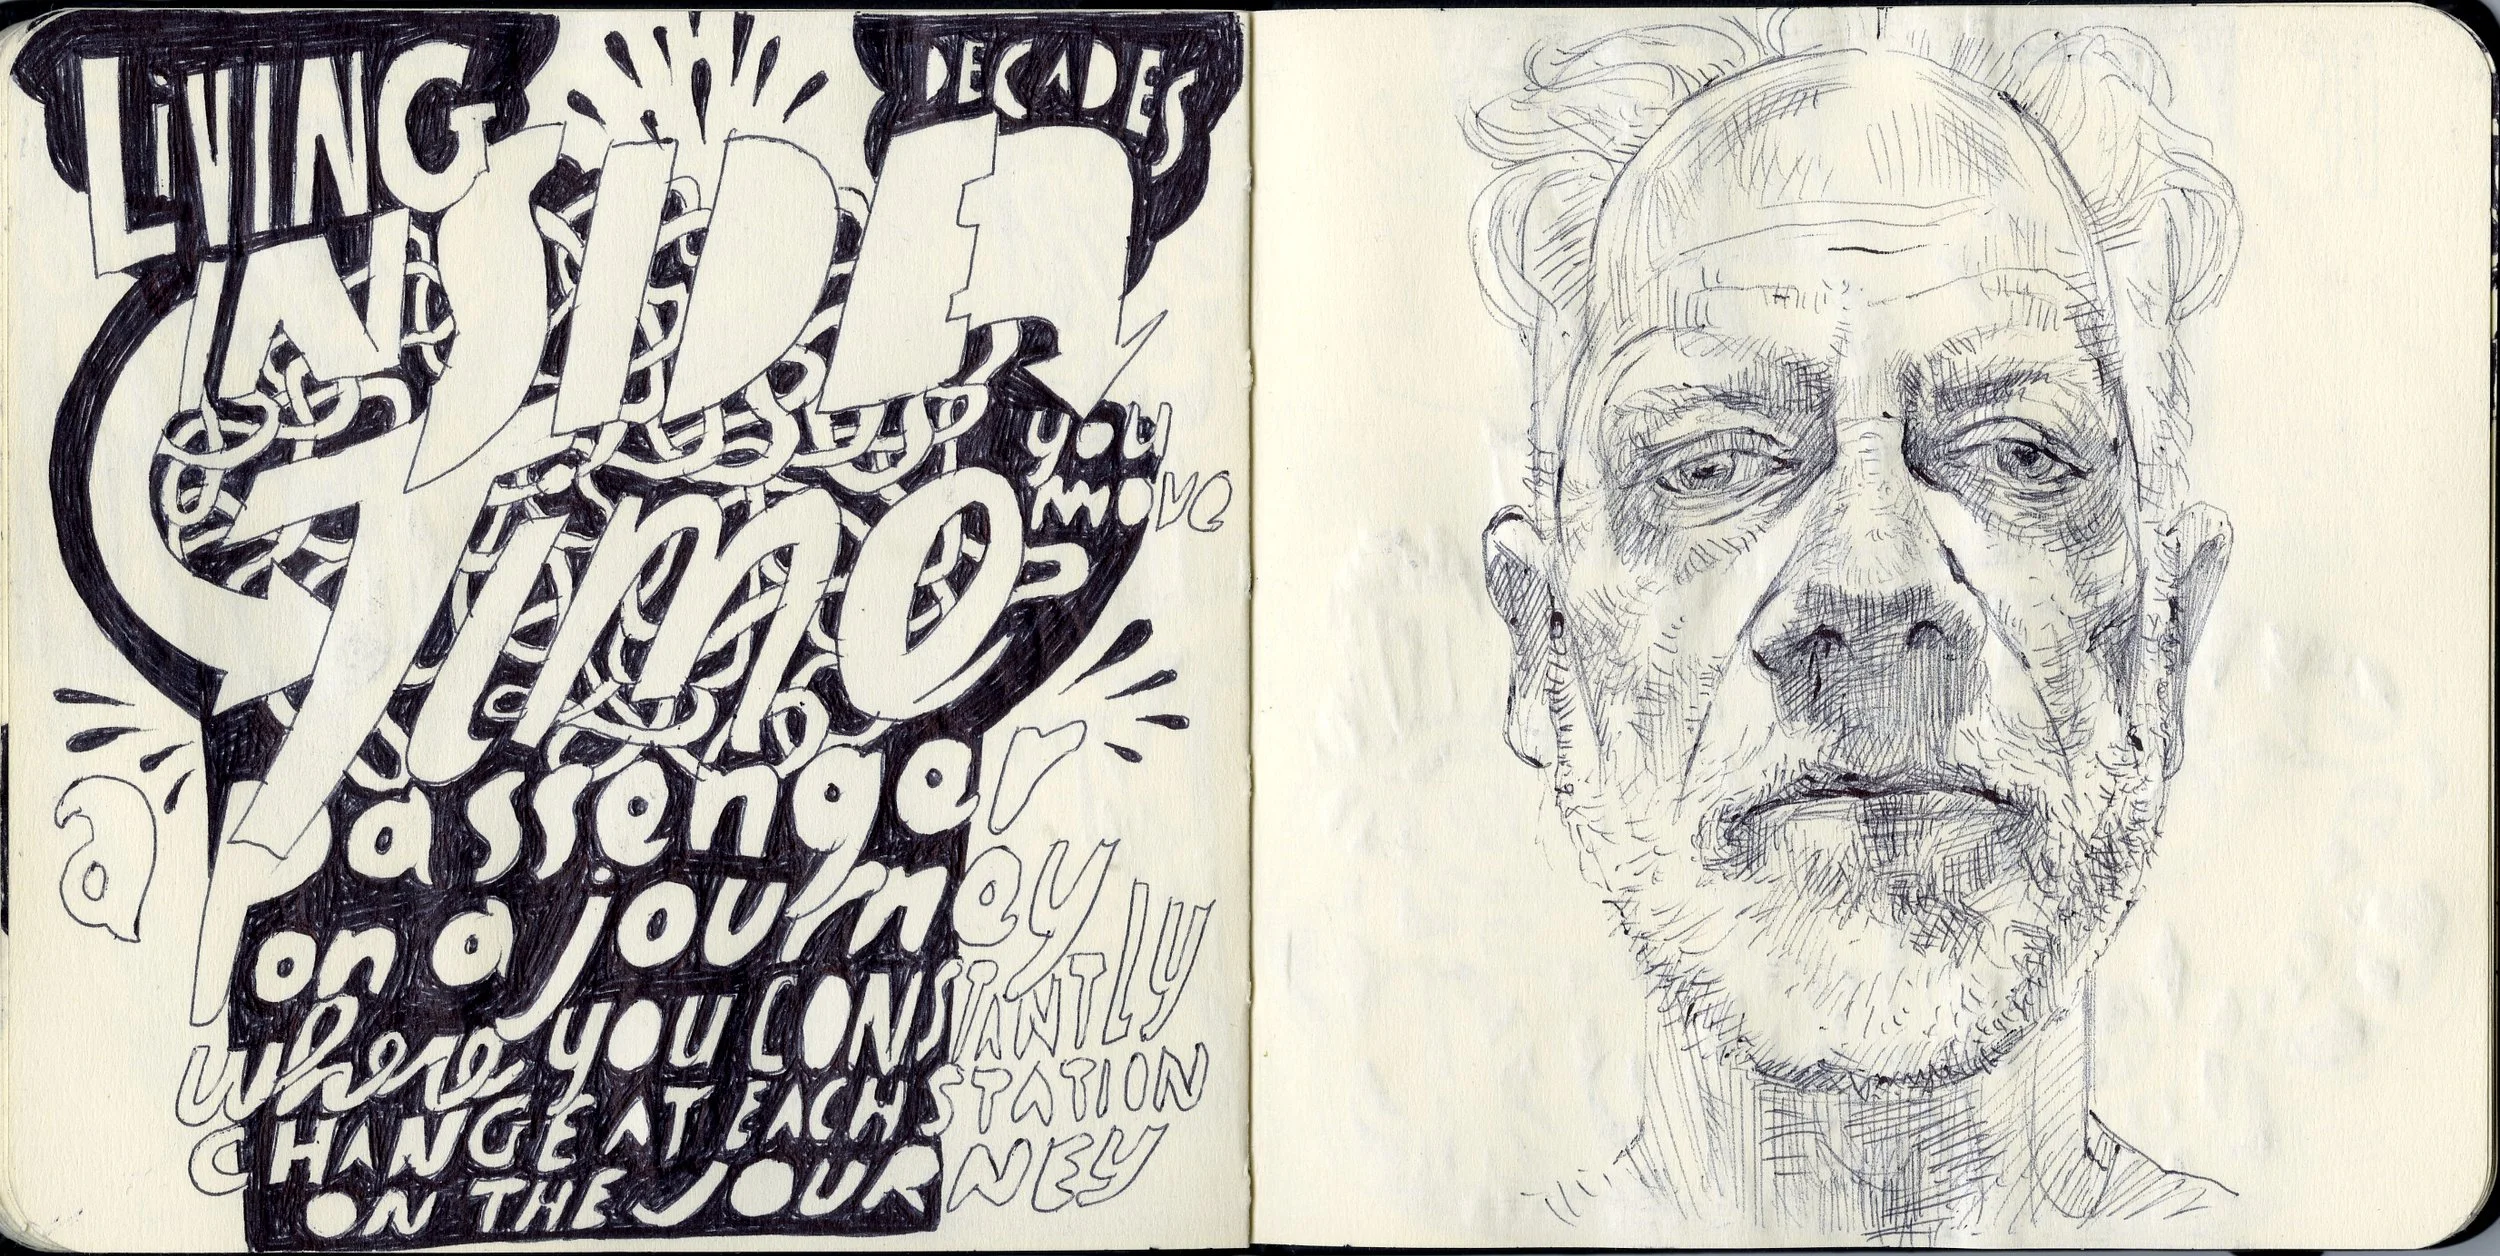 LiVING
DECADES
INSIDE
you
Time
move
a passenger
on a journey
where you CONSTANTLY
CHANGE AT EACH STATION
ON THE JOURNEY